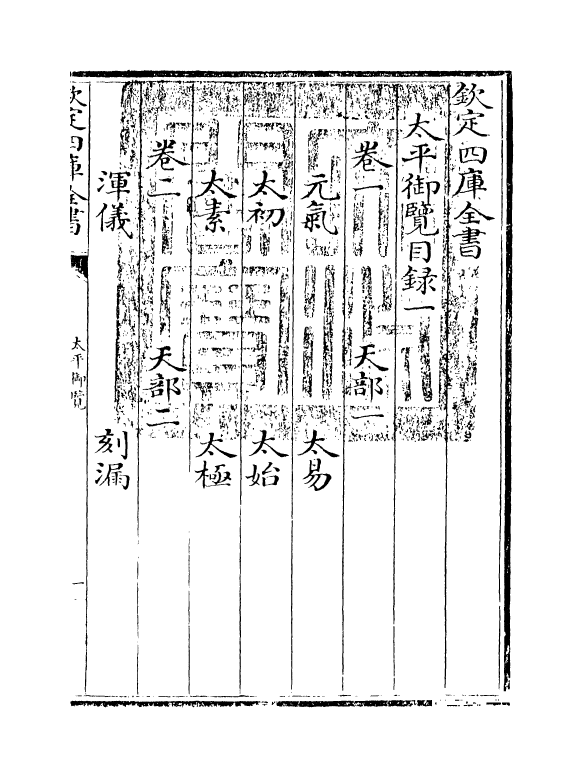 欽定四庫全書
太平御覽目録一
卷一 天部一
元氣 太易
太初 太始
太素 太極
卷二 天部二
渾儀 刻漏
欽定四庫全書 太平御覽 一